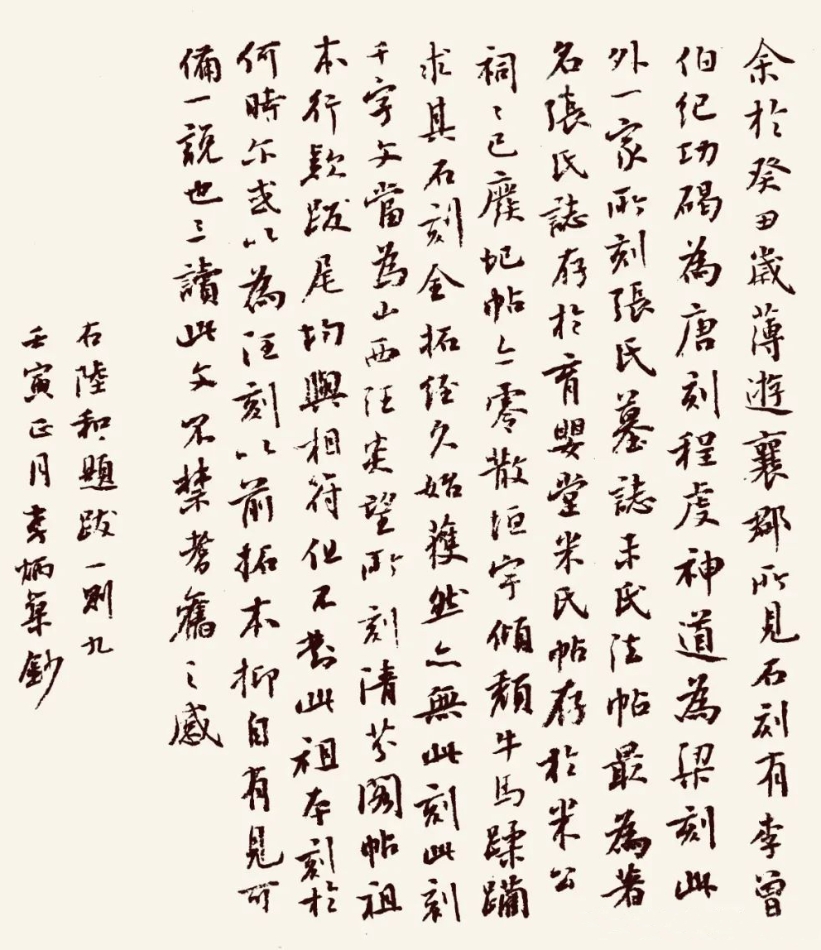 余於癸丑歲薄遊襄郡所見石刻有李曾
伯紀功碣為唐刻程虔神道為梁刻此
外一家所刻張氏墓誌米氏法帖最為著
名張氏誌存於育嬰堂米氏帖存於米公
祠〻已廢圮帖亦零散垣宇傾頹牛馬蹂躪
求其石刻全拓經久始獲然亦無此刻此刻
千字文當為山西汪炎望所刻清芬閣帖祖
本行款跋尾均與相符但不對此祖本刻於
何時尔或以為汪刻以前拓本抑自有見可
備一說也三讀此文不禁耆舊之感
右陸和題跋一則九
壬寅正月李炳集鈔